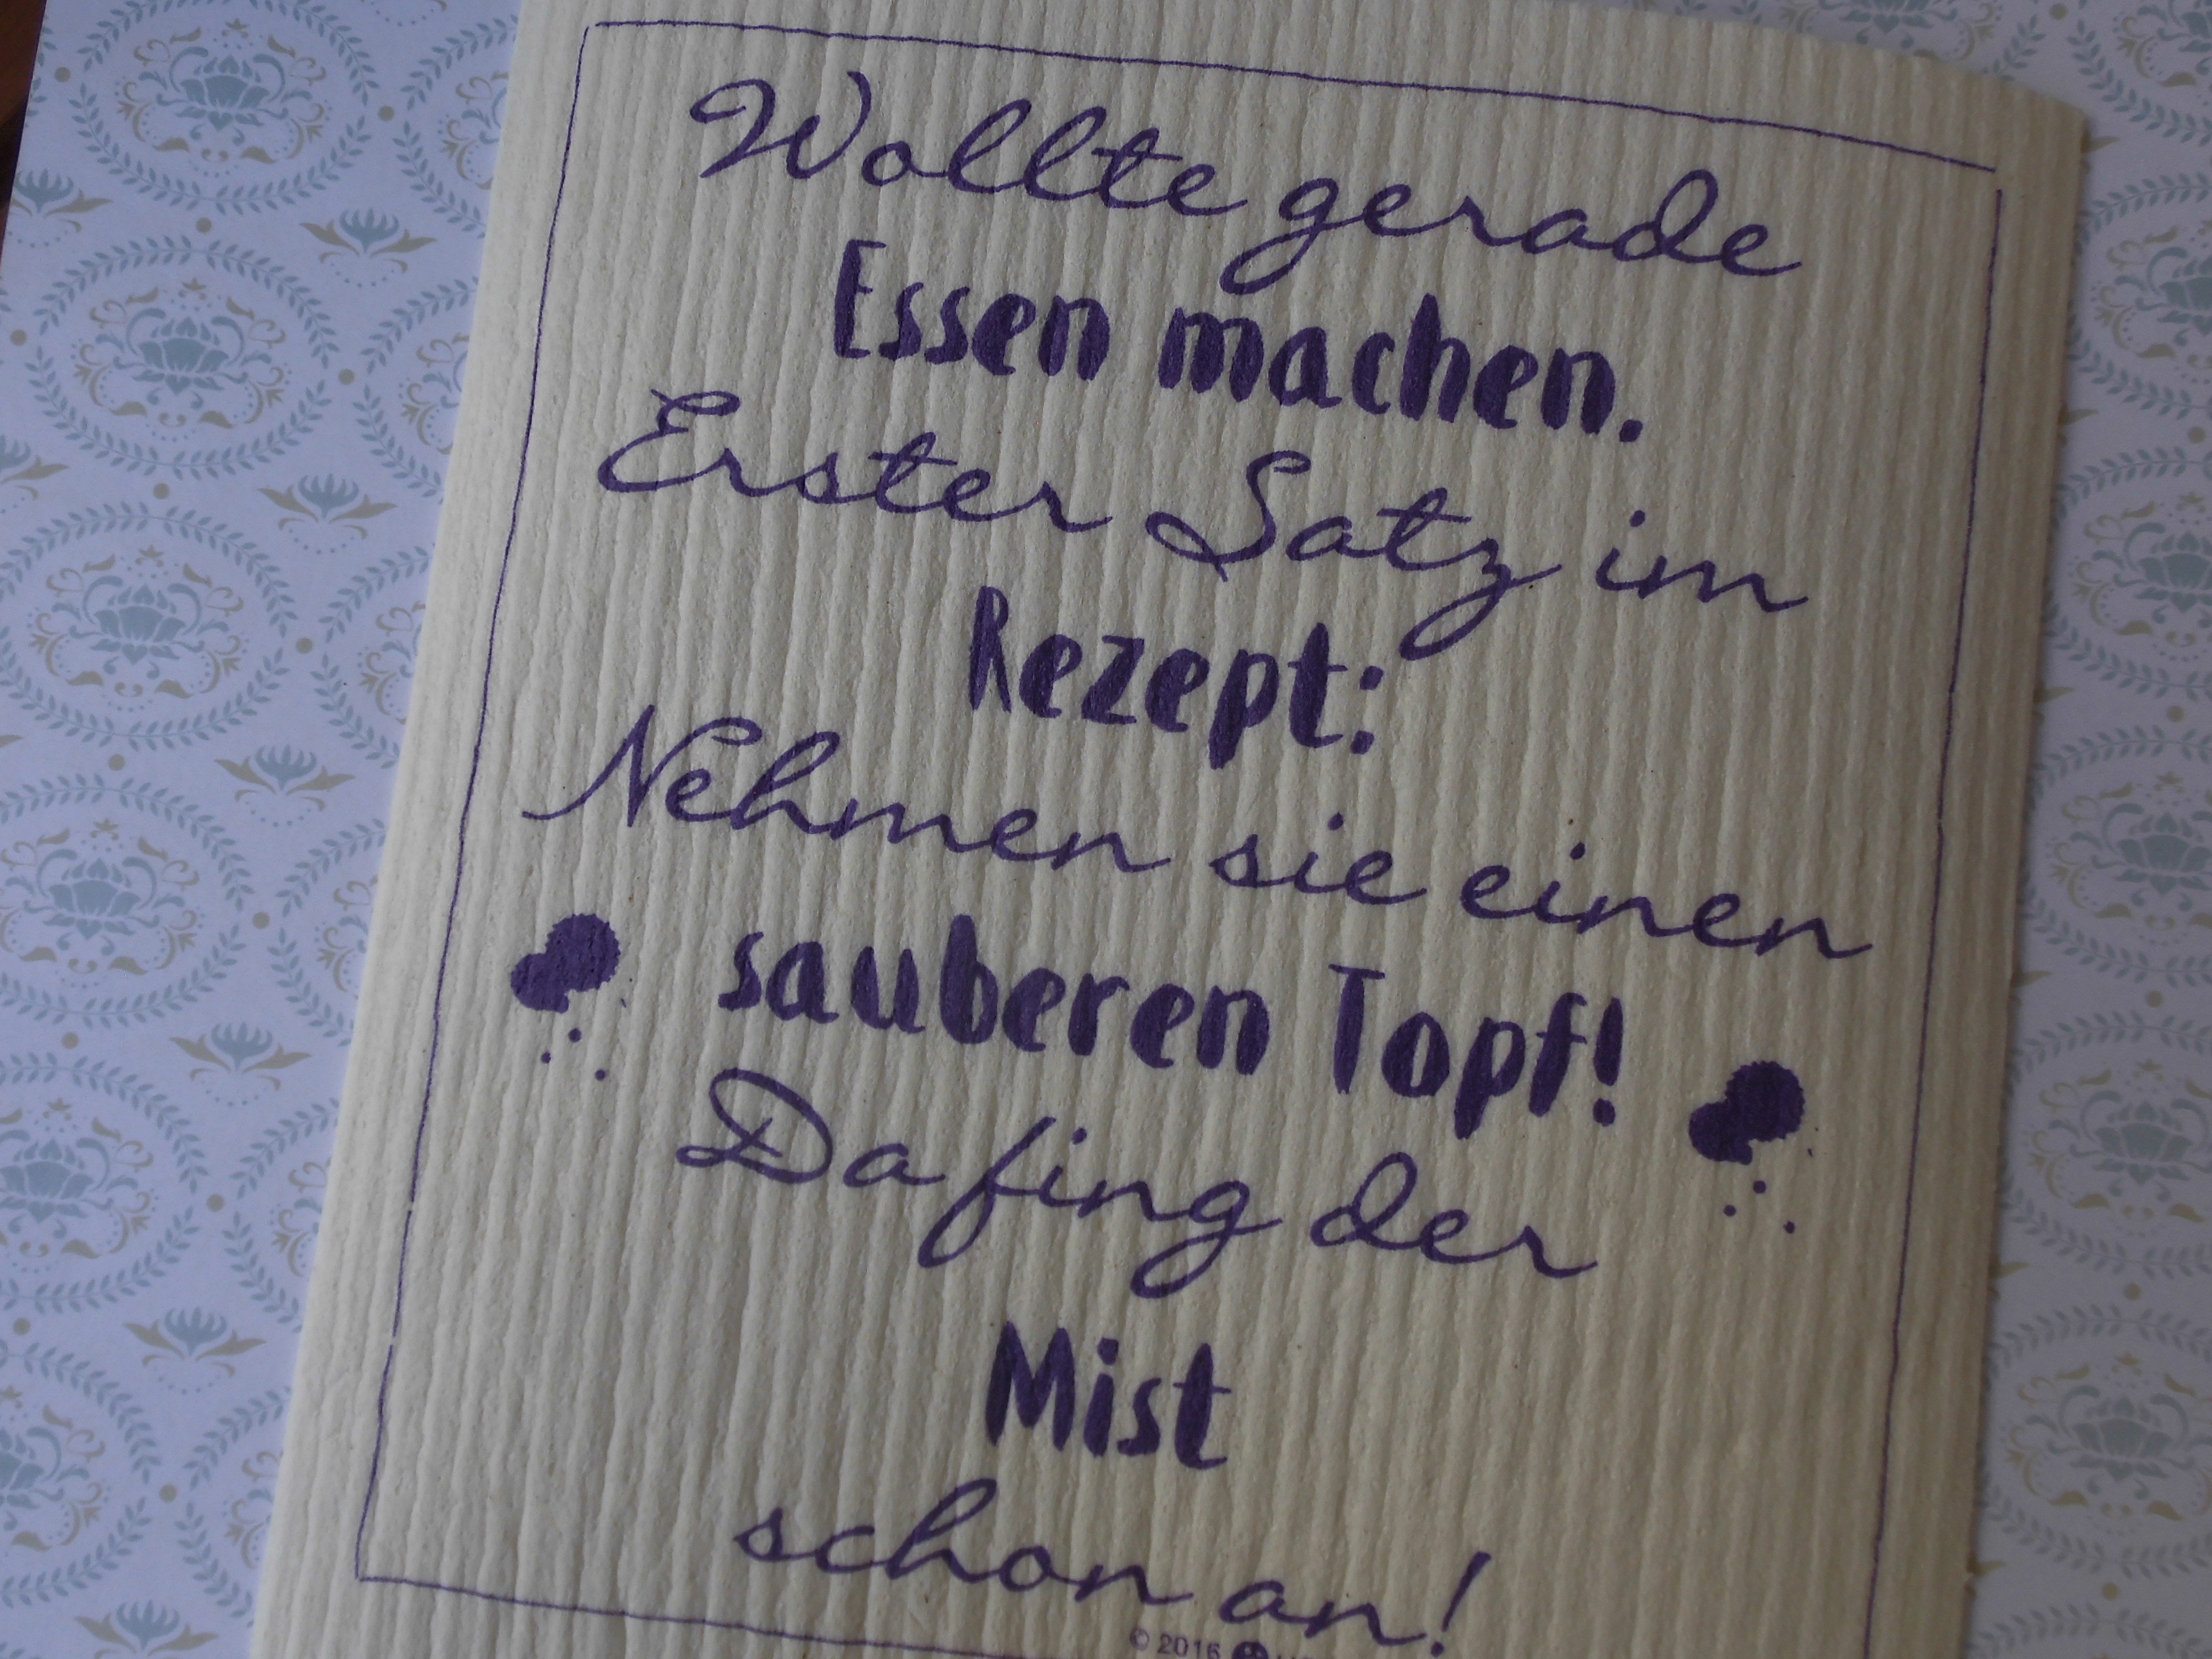 Wollte gerade
Essen machen.
Erster Satz im
Rezept:
Nehmen sie einen
sauberen Topf!
Da fing der
Mist
schon an!
© 2016